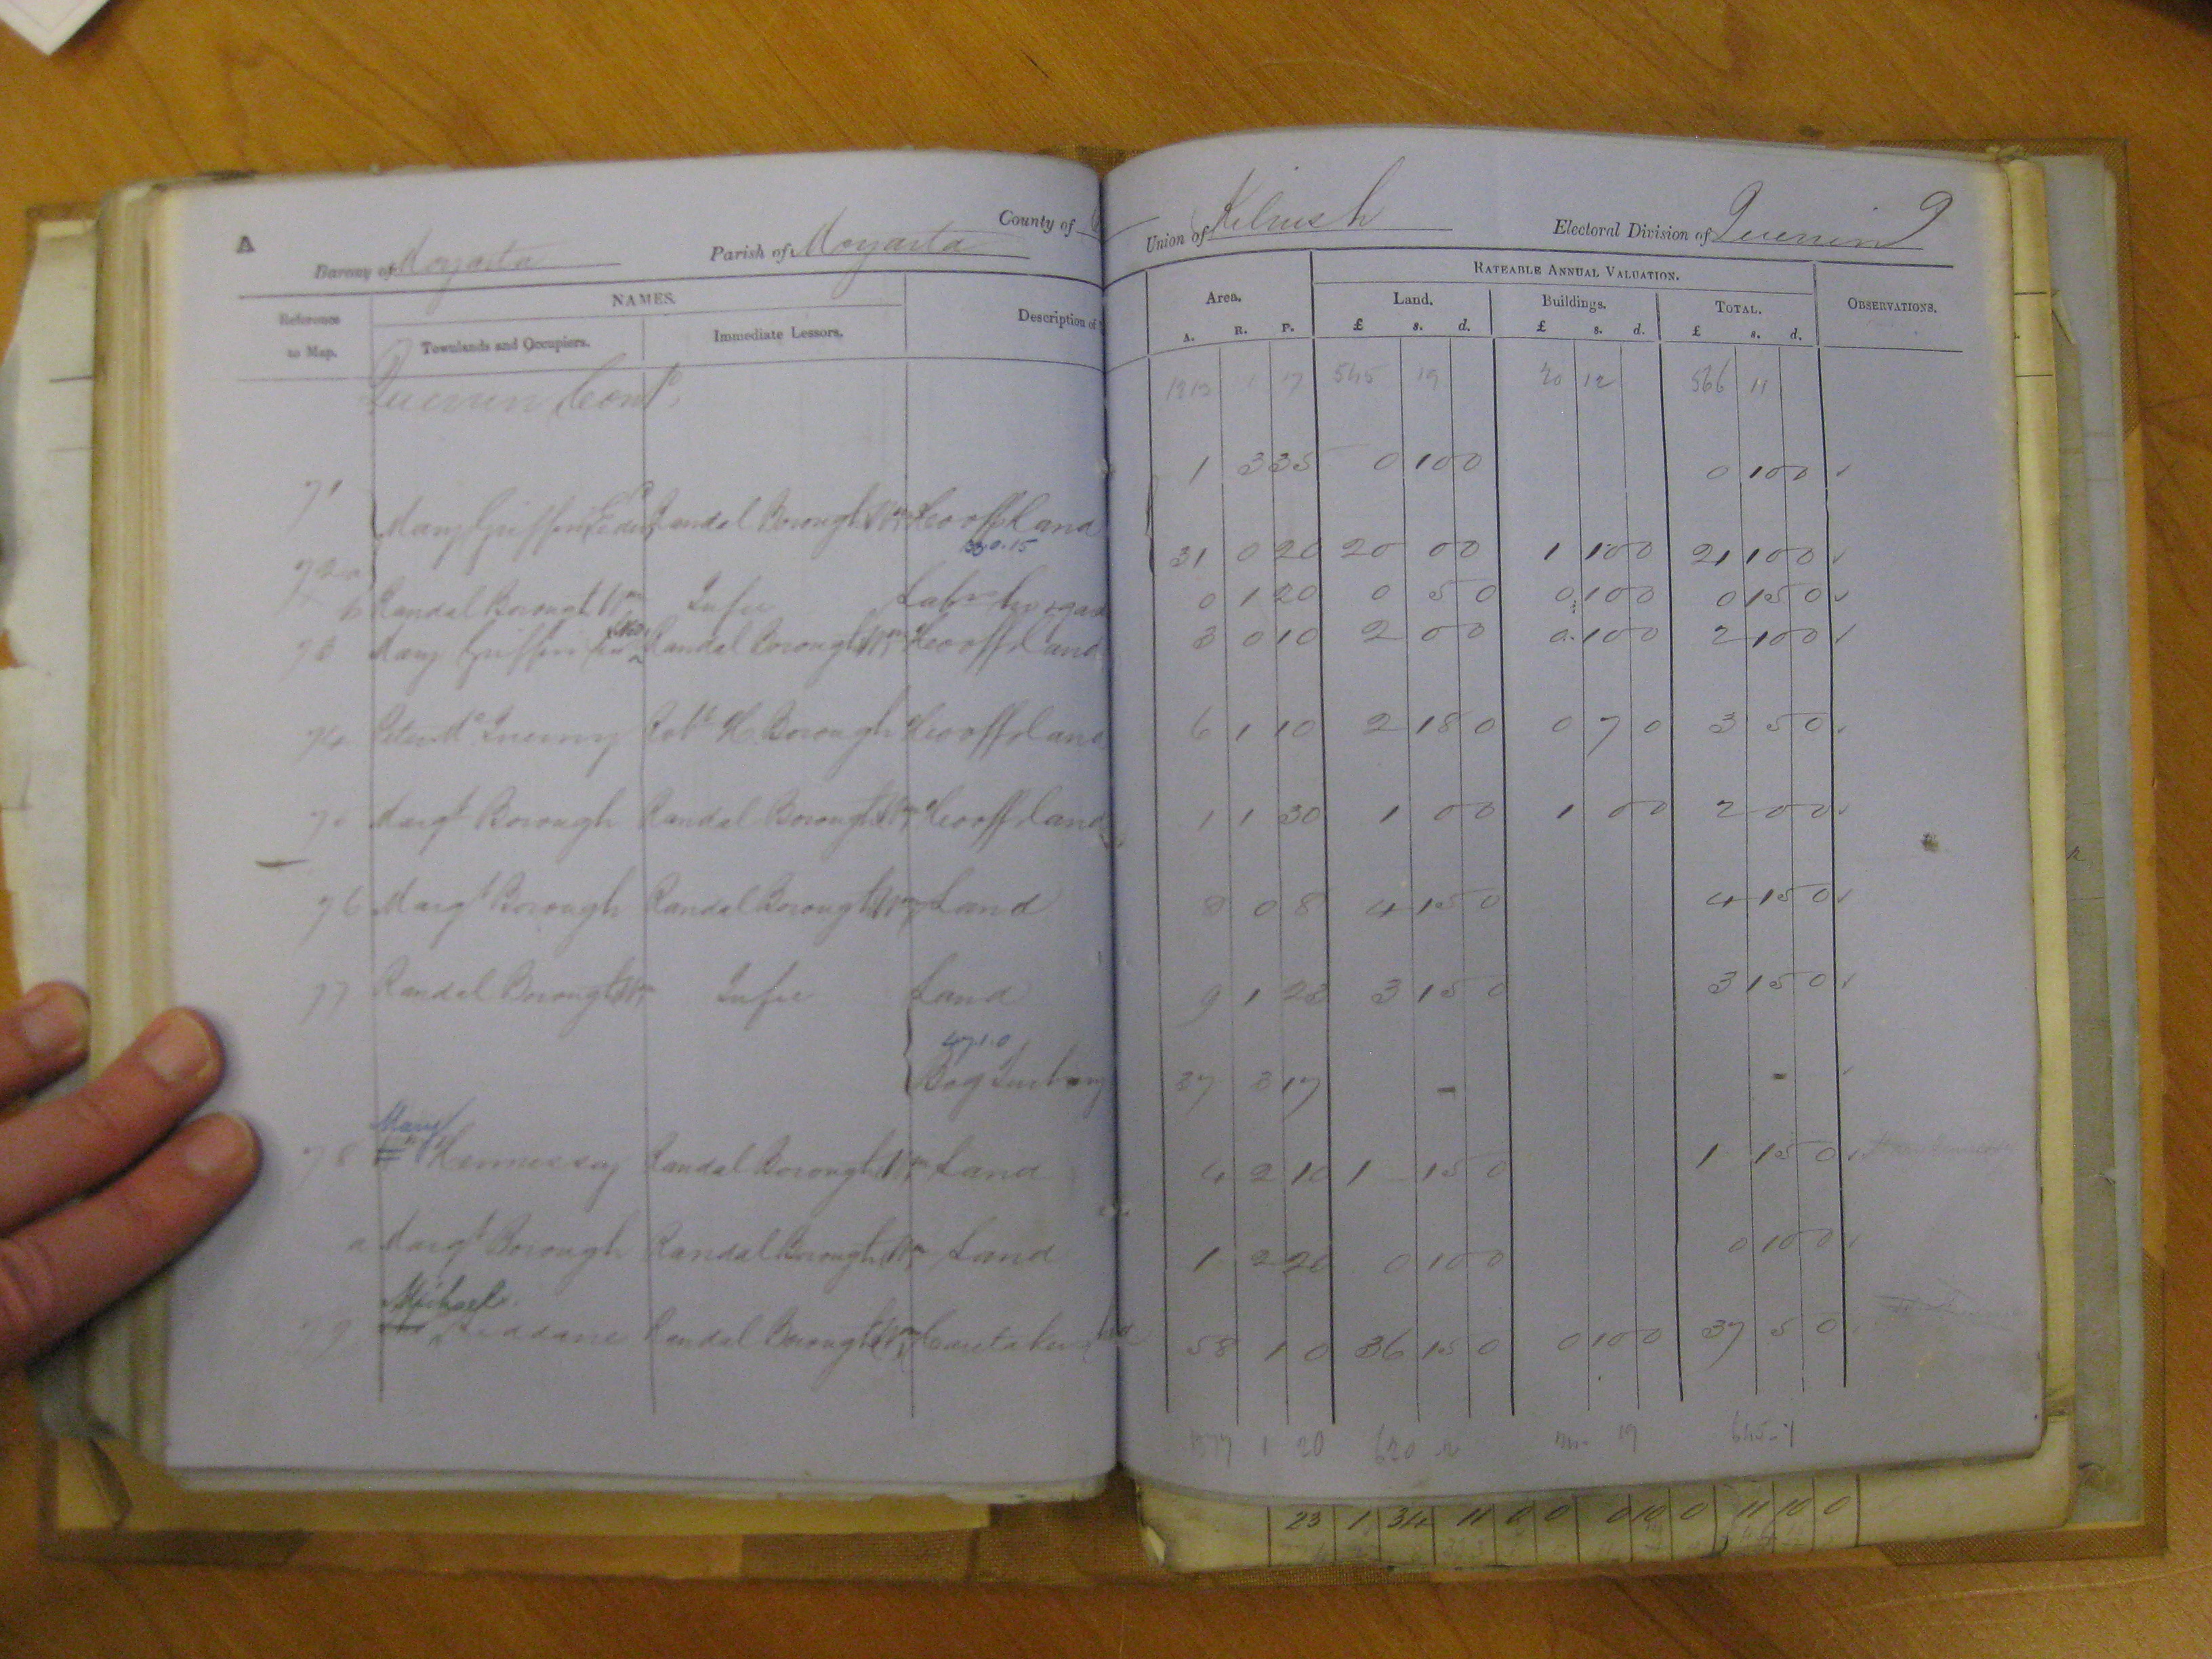 A
County of
Barony of Moyarta Parish of Moyarta
Union of Kilrush Electoral Division of Querrin 9
Reference to Map. NAMES. Description of
Townlands and Occupiers. Immediate Lessors.
Area. RATEABLE ANNUAL VALUATION. OBSERVATIONS.
Land. Buildings. TOTAL.
A. R. P. £ s. d. £ s. d. £ s. d.
Querrin Cont^d. 17 545 19 20 12 566 11
71 1 3 35 0 10 0 0 10 0
Mary Griffin Randal Borough Ho off Land
30.0.15
72 a 31 0 20 20 0 0 1 10 0 21 10 0
b Randal Borough In fee 0 1 20 0 5 0 0 10 0 0 15 0
73 Mary Griffin Randal Borough Ho off Land 3 0 10 2 0 0 0 10 0 2 10 0
74 Peter Mc Inerny Robt H. Borough Ho off Land 6 1 10 2 18 0 0 7 0 3 5 0
75 Margt Borough Randal Borough Ho off Land 1 1 30 1 0 0 1 0 0 2 0 0
76 Margt Borough Randal Borough Land 8 0 8 4 15 0 4 15 0
77 Randal Borough In fee Land 9 1 23 3 15 0 3 15 0
47.1.0
Bog Turbary 37 3 17 - -
Mary
78 Hennessy Randal Borough Land 4 2 10 1 15 0 1 15 0
a Margt Borough Randal Borough Land 1 2 20 0 10 0 0 10 0
Michael
79 Randal Borough Caretakers 58 1 0 36 15 0 0 10 0 37 5 0
1 20 620 2 19 645-1
23 1 34 11 0 0 0 10 0 11 10 0